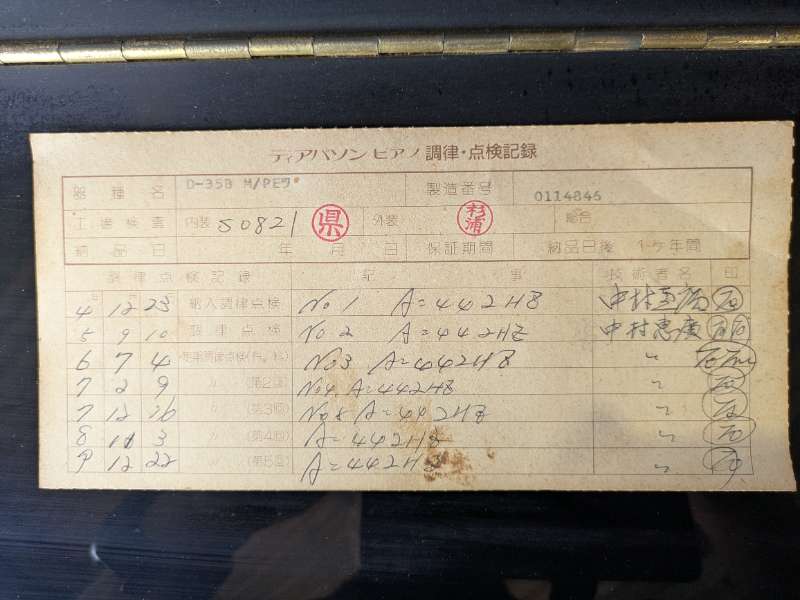 ディアパソンピアノ調律・点検記録
器種名 D-35B M/PEワ 製造番号 0114846
工場検査 内装 50821 県 外装 杉浦 総合
納品日 年 月 日 保証期間 納品日後 1ヶ年間
調律点検記録 記事 技術者名 印
4 12 23 納入調律点検 No 1 A=442HZ 中村
5 9 10 調律点検 No 2 A=442HZ 中村恵広
6 7 4 No3 A=442HZ 〃
7 2 9 〃 (第2回) No4 A=442HZ 〃
7 12 26 〃 (第3回) No5 A=442HZ 〃
8 11 3 〃 (第4回) A=442HZ 〃
9 12 22 〃 (第5回) A=442HZ 〃